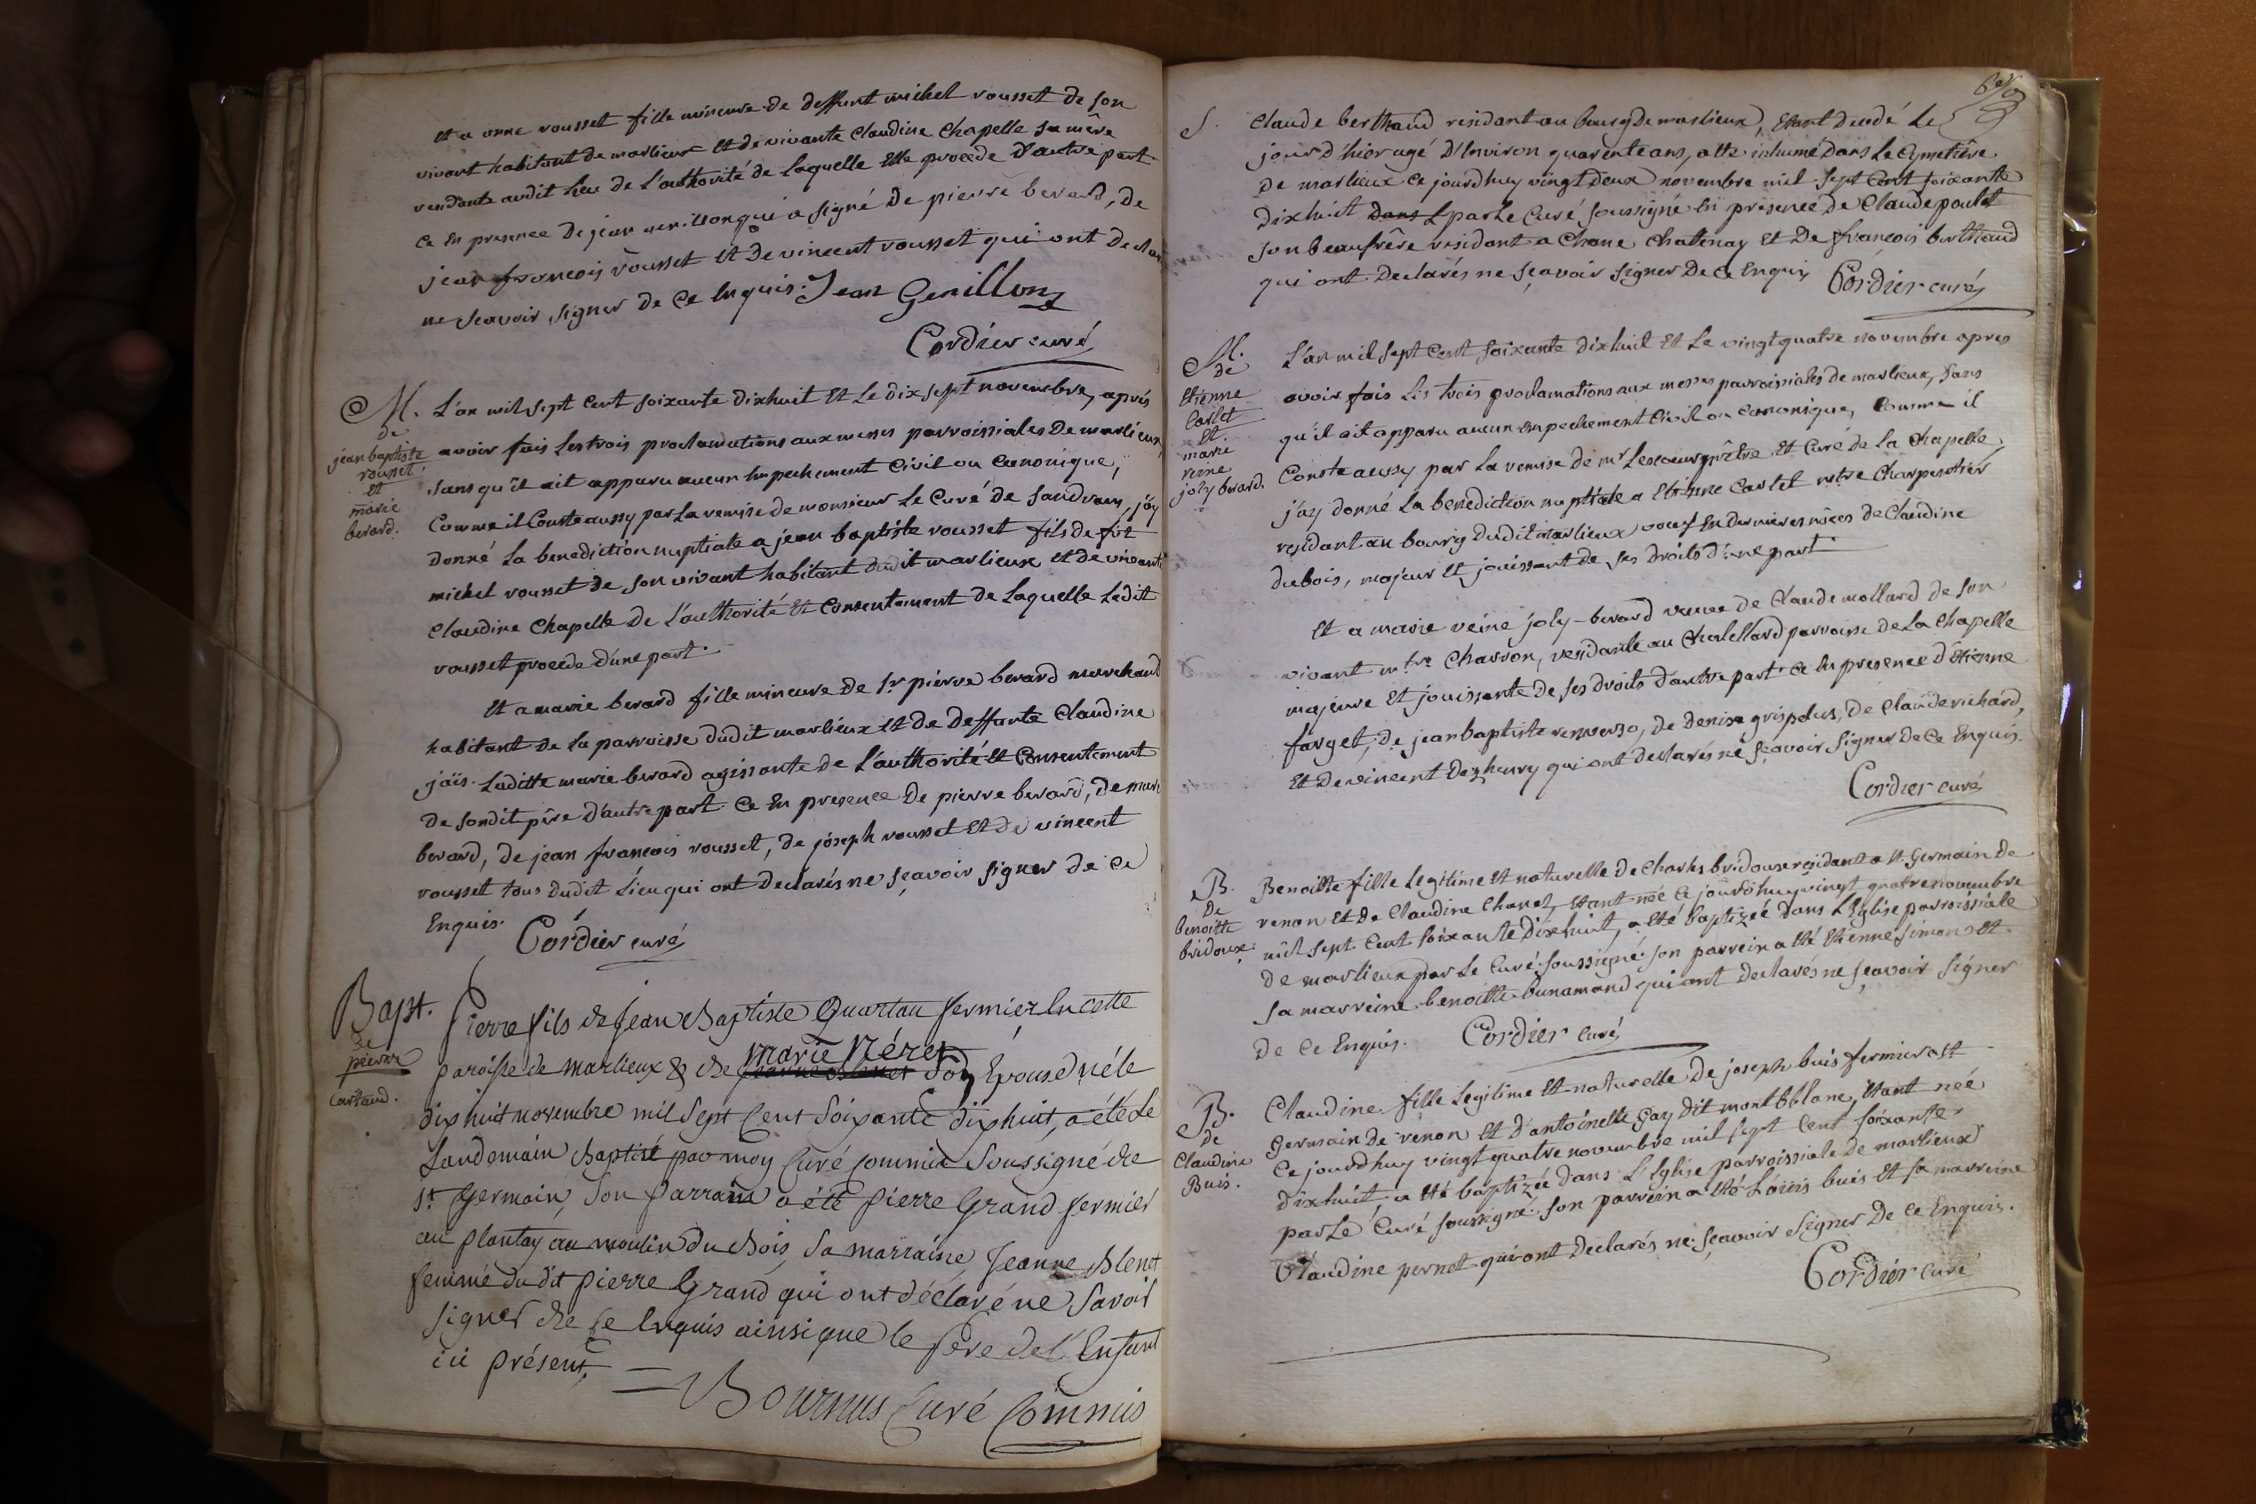 et a anne rousset fille mineure de deffunt michel rousset de son
vivant habitant de marlieux et de vivante Claudine Chapelle sa mère
residante audit lieu de l'authorité de laquelle elle procede d'autre part
Ce en presence de jean genillon qui a signé de pierre berard, de
jean françois rousset et de vincent rousset qui ont declaré
ne sçavoir signer de ce enquis. Jean Genillon
Cordier curé
M.
de
jean baptiste
rousset
et
marie
berard.
L'an mil sept cent soixante dixhuit et le dix sept novembre, après
avoir fais les trois proclamations aux messes parroissiales de marlieux
sans qu'il ait apparu aucun empechement civil ou canonique,
Comme il Conste aussy par la remise de monsieur le Curé de sandrans, j'ay
donné la benediction nuptiale a jean baptiste rousset fils de fût
michel rousset de son vivant habitant dudit marlieux et de vivante
Claudine Chapelle de l'authorité et consentement de laquelle ledit
rousset procede d'une part.
Et a marie berard fille mineure de sr pierre berard marchand
habitant de la parroisse dudit marlieux et de deffunte Claudine
jaïs. Laditte marie berard agissante de l'authorité et consentement
de sondit père d'autre part Ce en presence de pierre berard, de
berard, de jean françois rousset, de joseph rousset et de vincent
rousset tous dudit lieu qui ont declarés ne sçavoir signer de ce
Enquis. Cordier curé
Bapt.
de
pierre
Cartaud.
Pierre fils de Jean Baptiste Quartau fermier en cette
paroisse de marlieux & de Marie Nérer son Epouse né le
dix huit novembre mil sept Cent soixante dixhuit, a été le
Landemain Baptisé par moy Curé Commis soussigné de
St Germain, son parrain a été pierre Grand fermier
au plantay au moulin du Bois, sa marraine Jeanne Blenet
femme du dit pierre Grand qui ont déclaré ne savoir
signer de ce Enquis ainsi que le pere de l'Enfant
ici présent.
Bournus Curé Commis
S.
Claude berthaud residant au bourg de marlieux, etant decedé le
jour d'hier agé d'Environ quarente ans, a ete inhumé dans le Cymetière
de marlieux ce jourdhuy vingt deux novembre mil sept cent soixante
dixhuit dans L par le Curé soussigné en presence de Claude poulet
son beaufrère residant a Chane Chatenay et de françois berthaud
qui ont declarés ne sçavoir signer de ce Enquis Cordier curé
M.
de
Etienne
Carlet
et
marie
reine
joly berard.
L'an mil sept cent soixante dixhuit et le vingt quatre novembre apres
avoir fais les trois proclamations aux messes parroissiales de marlieux, sans
qu'il ait apparu aucun empechement Civil ou canonique, Comme il
Conste aussy par la remise de mr Lescoeur prêtre et Curé de la Chapelle,
j'ay donné la benediction nuptiale a Etienne Carlet mtre Charpentier
residant au bourg dudit marlieux veuf en dernieres nôces de Claudine
dubois, majeur et jouissant de ses droits d'une part
Et a marie reine joly-berard veuve de Claude mollard de son
vivant mtre Charron, residante au Chatellard parroisse de la Chapelle
majeure et jouissante de ses droits d'autre part. Ce en presence d'Etienne
farget, de jean baptiste de denise de Claude richard,
Et de vincent qui ont declarés ne sçavoir signer de ce Enquis.
Cordier curé
B.
de
benoitte
bridoux.
Benoitte fille legitime et naturelle de Charles bridoux residant a st Germain de
renon et de Claudine Chanel, etant née ce jourd'huy vingt quatre novembre
mil sept cent soixante dixhuit, a eté baptizée dans l'Eglise parroissiale
de marlieux par le Curé soussigné. son parrein a eté Etienne Simon et
sa marreine benoitte bunamond qui ont declarés ne sçavoir signer
de ce Enquis. Cordier curé
B.
de
Claudine
Buis.
Claudine fille legitime et naturelle de joseph buis fermier a st
Germain de renon et d'antoinette Gay dit montblanc, etant née
Ce jourd'huy vingt quatre novembre mil sept cent soixante
dixhuit, a eté baptizée dans l'Eglise parroissiale de marlieux
par le Curé soussigné. son parrein a eté Loüis buis et sa marreine
Claudine pernet qui ont declarés ne sçavoir signer de ce Enquis.
Cordier curé